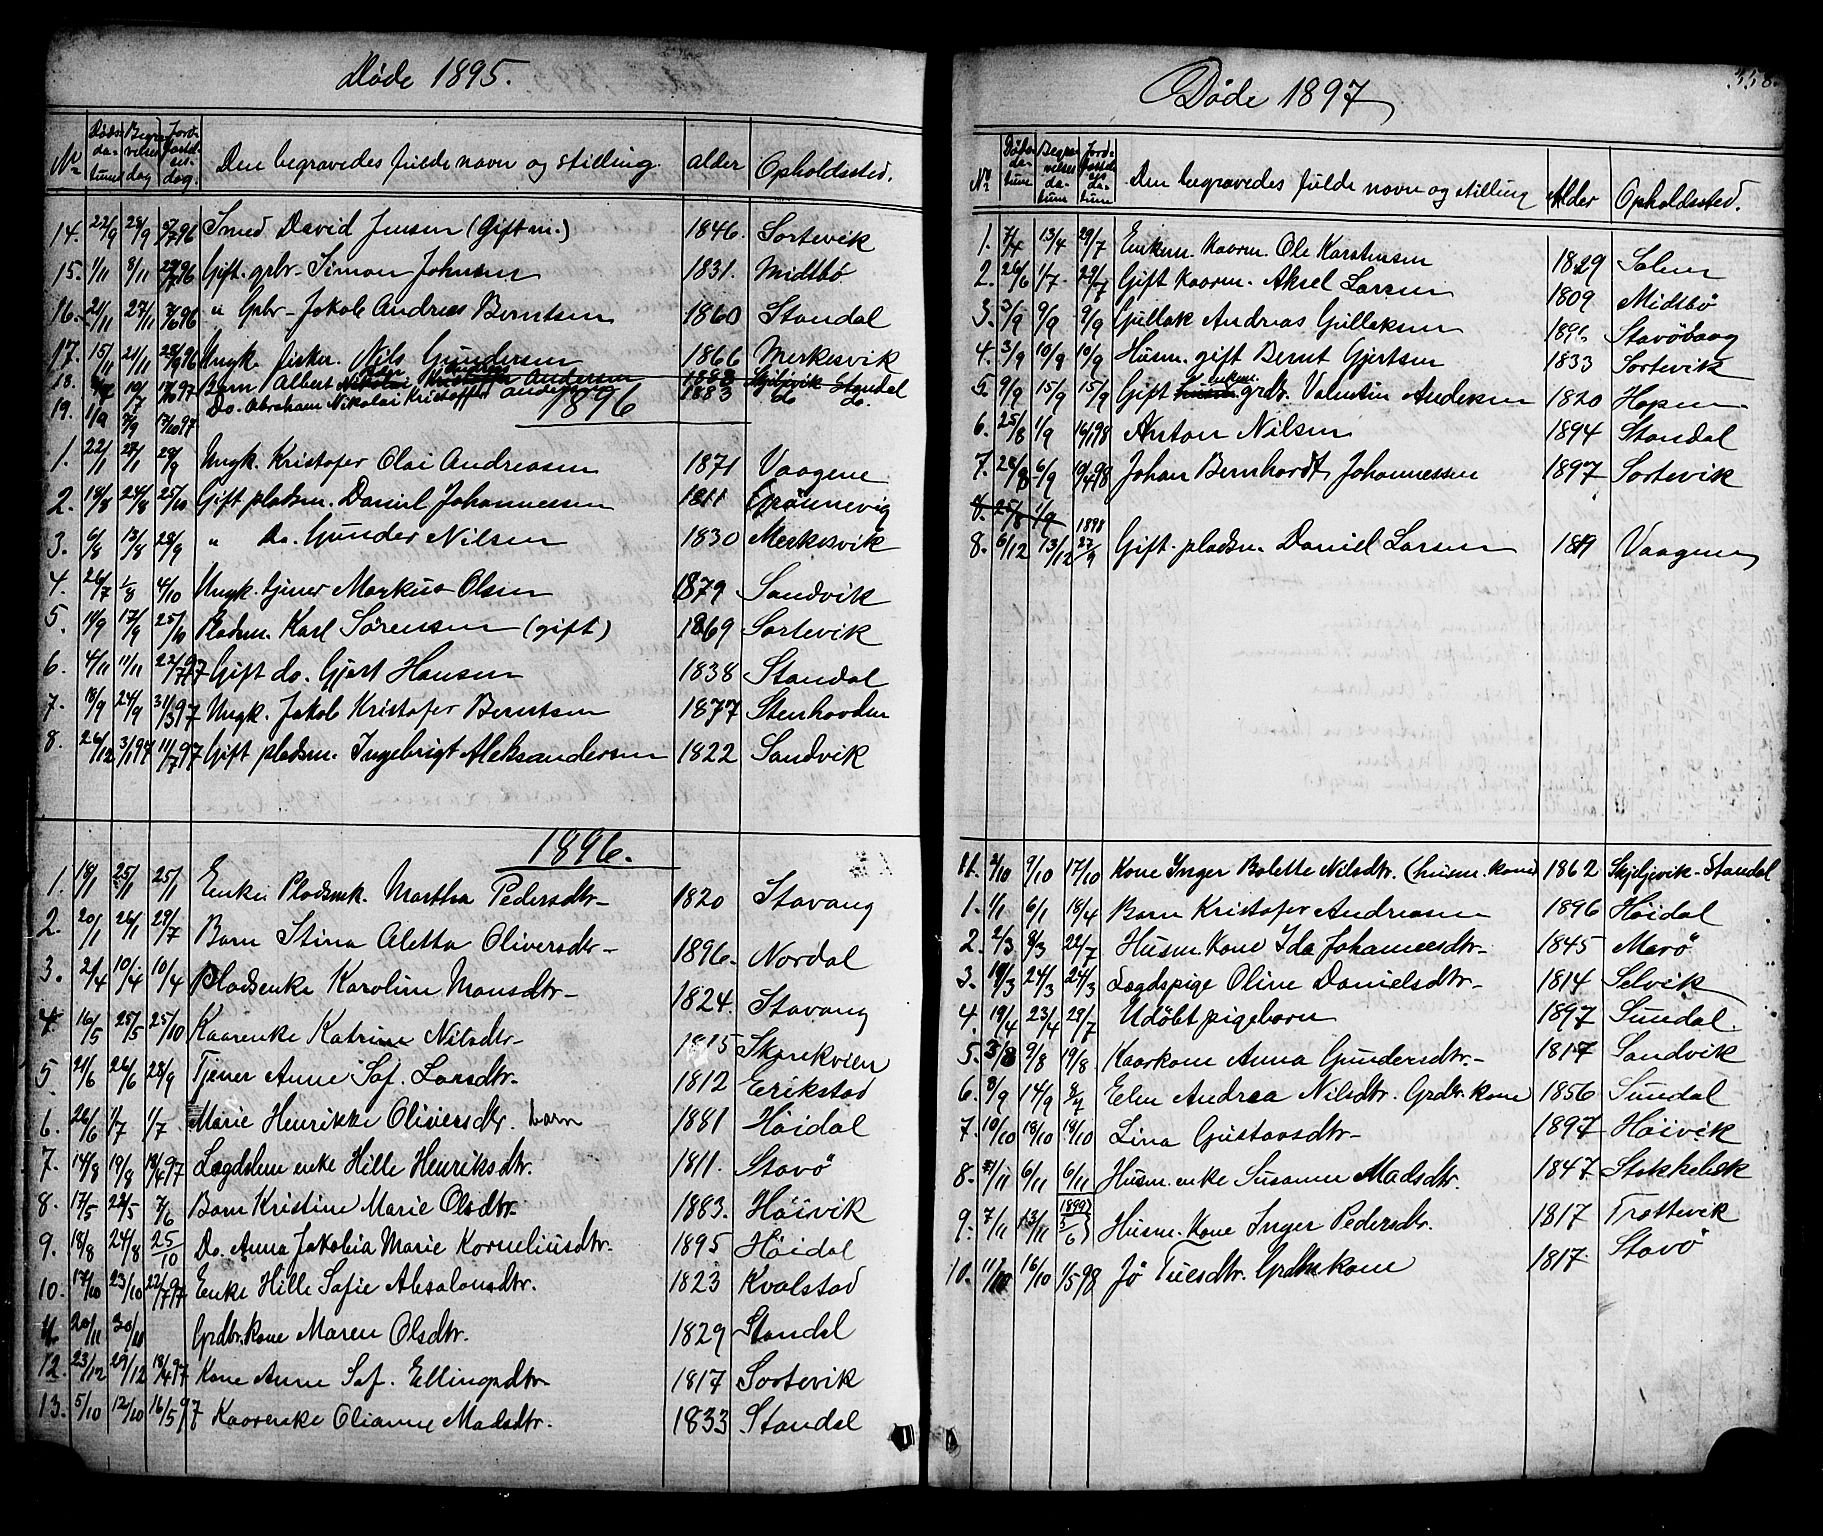 Døde 1895.
No Døds-datum Begravelses dag Jordfæstelses-dag. Den begravedes fulde navn og stilling. alder Opholdssted.
14. 22/9 28/9 96 Smed David Jensen (Gift m.) 1846. Sortevik
15. 1/11 8/11 96 Gift. grbr. Simon Johnsen 1831. Midtbø
16. 21/11 27/11 96 " Grbr. Jakob Andreas Berntsen 1860 Standal
17. 15/11 21/11 28/9 96 Ungk. fisker. Nils Gundersen 1866 Merkesvik
18. 19/7 97 Barn Albert Nikolai Kristoffer Andersen 1888 Skjeljevik Standal
19. 1/9 7/9 17/10 97 Do. Abraham Nikolai Kristoffer Andersen 1883 do do.
1896
1. 22/1 28/1 28/9 Ungk. Kristofer Olai Andreasen 1871 Vaagene
2. 18/8 24/8 25/10 Gift pladsm. Daniel Johannessen 1811 Grønnevig
3. 6/8 13/8 28/9 " Do. Gunder Nilsen 1830 Merkesvik
4. 26/7 1/8 4/10 Ungk. tjener Markus Olsen 1879 Sandvik
5. 11/9 17/9 25/10 Pladsm. Karl Sørensen (gift) 1869 Sortevik
6. 4/11 11/11 22/7 97 Gift do. Gjert Hansen 1838 Standal
7. 18/9 24/9 31/3 97 Ungk. Jakob Kristofer Berntsen 1877 Stenhovden
8. 26/12 3/1 97 11/7 97 Gift pladsm. Ingebrigt Aleksandersen 1822 Sandvik
1896.
1. 18/1 25/1 25/1 Enke Pladsmk. Martha Pedersdtr. 1820 Stavang
2. 20/1 26/1 29/7 Barn Stina Aletta Oliversdtr. 1896. Nordal
3. 2/4 10/4 10/4 Pladsenke Karoline Monsdtr. 1824. Stavang
4. 16/5 25/5 25/10 Kaarenke Katrine Nilsdtr. 1815 Skorekvien
5. 21/6 26/6 28/9 Tjener Anne Sof. Larsdtr. 1812 Erikstad
6. 26/6 1/7 1/7 Marie Henrikke Oliversdtr. barn 1881 Høidal
7. 14/8 19/8 18/4 97 Lægdslem enke Hille Henriksdtr. 1811. Stavø
8. 17/5 24/5 7/6 Barn Kristine Marie Olsdtr. 1883. Høivik
9. 18/8 24/8 25/10 Do. Anna Jakobia Marie Korneliusdtr. 1895 Høidal
10. 17/10 23/10 22/7 97 Enke Hille Sofie Absalonsdtr. 1823 Kvalstad
11. 20/11 30/11 Grdbr. kone Maren Olsdtr. 1829 Standal
12. 23/12 29/12 18/4 97 Kone Anne Sof. Ellingsdtr 1817 Sortevik
13. 5/10 12/10 16/5 97 Kaarenke Olianne Madsdtr. 1833 Standal
Døde 1897
338.
No Døds-datum Begravelses datum Jordfæstelses datum Den begravedes fulde navn og stilling Alder Opholdssted.
1. 7/4 13/4 29/7 Enkem. kaarm. Ole Karstensen 1829 Solem
2. 26/6 1/7 29/7 Gift kaarm. Aksel Larsen 1809 Midtbø
3. 3/9 9/9 9/9 Gullak Andreas Gullaksen Stavøbaag
4. 3/9 10/9 10/9 Husm. gift Bernt Gjertsen 1833 Sortevik
5. 9/9 15/9 15/9 Gift grdbr. Valentin Andersen 1820 Hopen
6. 25/8 1/9 16/1 98 Anton Nilsen 1894 Standal
7. 28/8 6/9 10/4 98 Johan Bernhardt Johannessen 1897 Sortevik
8. 25/8 1/9
8. 6/12 13/12 1898 27/9 Gift. pladsm. Daniel Larsen 1819 Vaagene
11. 2/10 9/10 17/10 Kone Inger Bolette Nilsdtr. (husm. kone) 1862 Skjeljevik-Standal
1. 1/1 6/1 18/4 Barn Kristofer Andreasen 1896 Høidal
2. 2/3 8/3 22/7 Husm. Kone Ida Johannesdtr. 1845 Marø
3. 19/3 24/3 24/3 Lægdspige Oline Danielsdtr. 1814 Selvik
4. 19/4 23/4 29/7 Udøbt pigebarn 1897 Sundal.
5. 3/8 9/8 19/8 Kaarkone Anna Gundersdtr. 1817 Sandvik
6. 8/9 14/9 Elen Andrea Nilsdtr. Grdbr. kone 1856 Sundal
7. 10/10 18/10 18/10 Lina Gustavsdtr. 1897 Høivik
8. 6/11 6/11 Husm. enke Susanne Madsdtr. 1847 Stokkebæk
9. 7/11 13/11 Husm. Kone Inger Pedersdtr. 1817 Trottevik
10. 11/10 16/10 1/5 98 Jø Tuesdtr. Grdbr kone 1817. Stavø